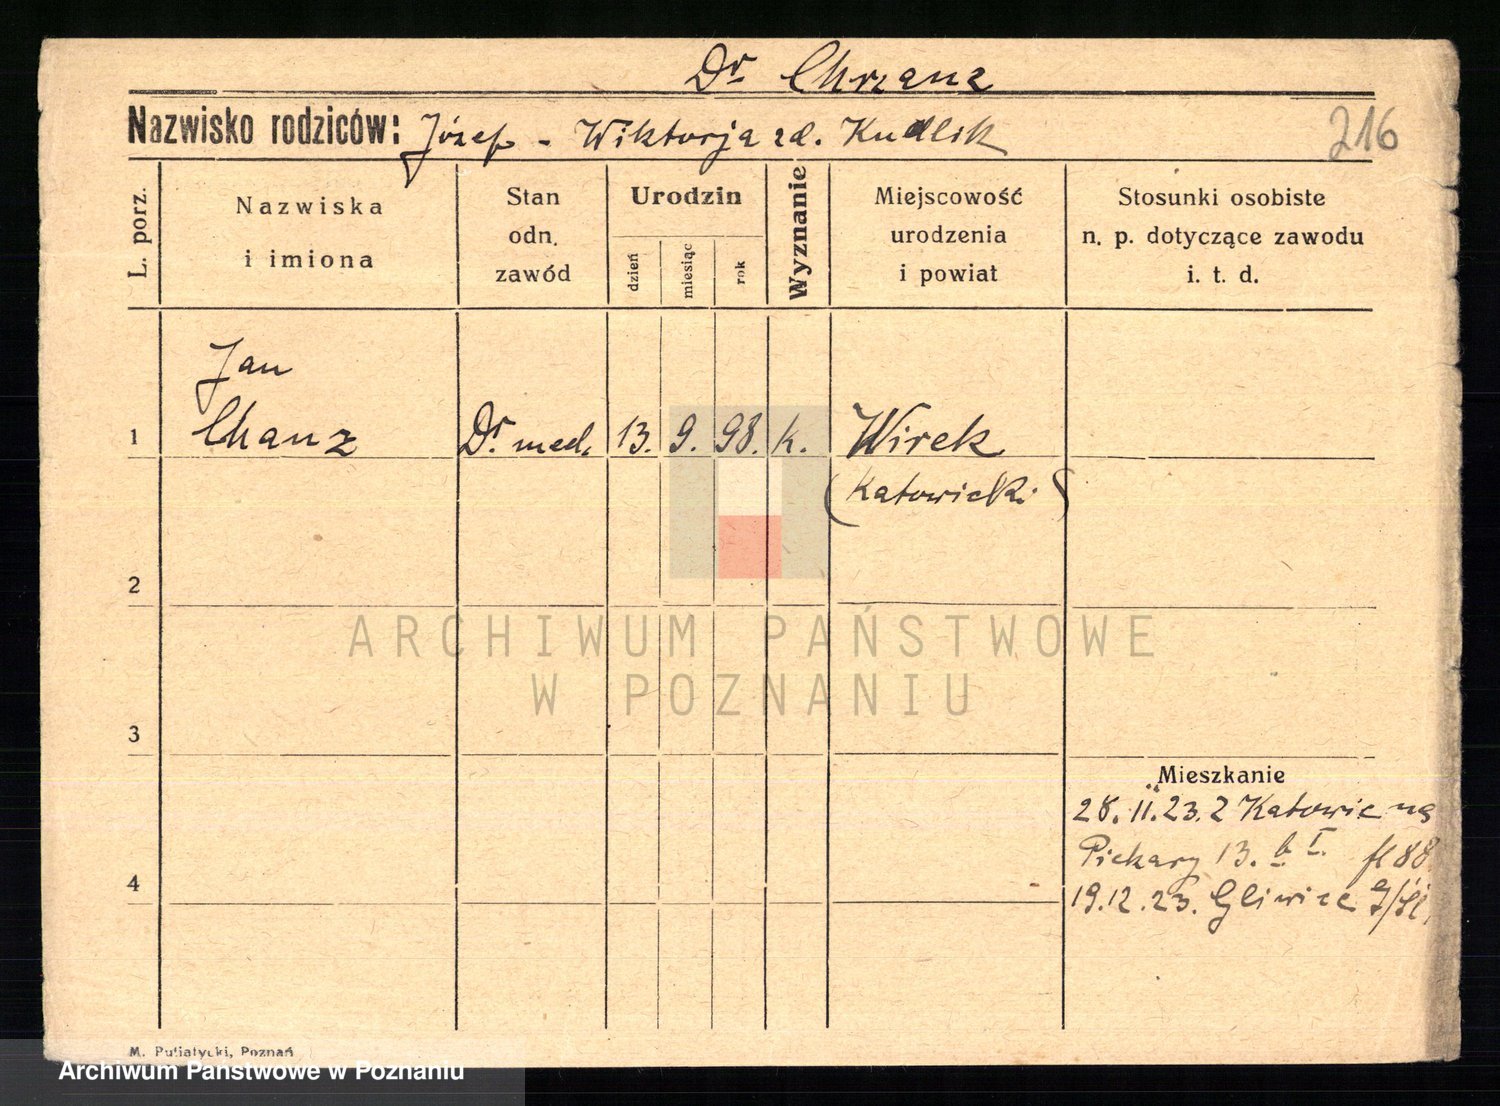 Dr Chrzanz
Nazwisko rodziców: Józef - Wiktorja zd. Kudlik
216
L. porz.
Nazwiska
i imiona
Stan
odn.
zawód
Urodzin
dzień
miesiąc
rok
Wyznanie
Miejscowość
urodzenia
i powiat
Stosunki osobiste
n. p. dotyczące zawodu
i. t. d.
Jan
1 Chanz Dr. med. 13. 9. 98. k. Wirek
(Katowicki)
2
ARCHIWUM PAŃSTWOWE
W POZNANIU
3
Mieszkanie
28. II. 23. z Katowic na
Piekary 13. b I.
4
19.12.23. Gliwice
M. Putiatycki, Poznań
Archiwum Państwowe w Poznaniu